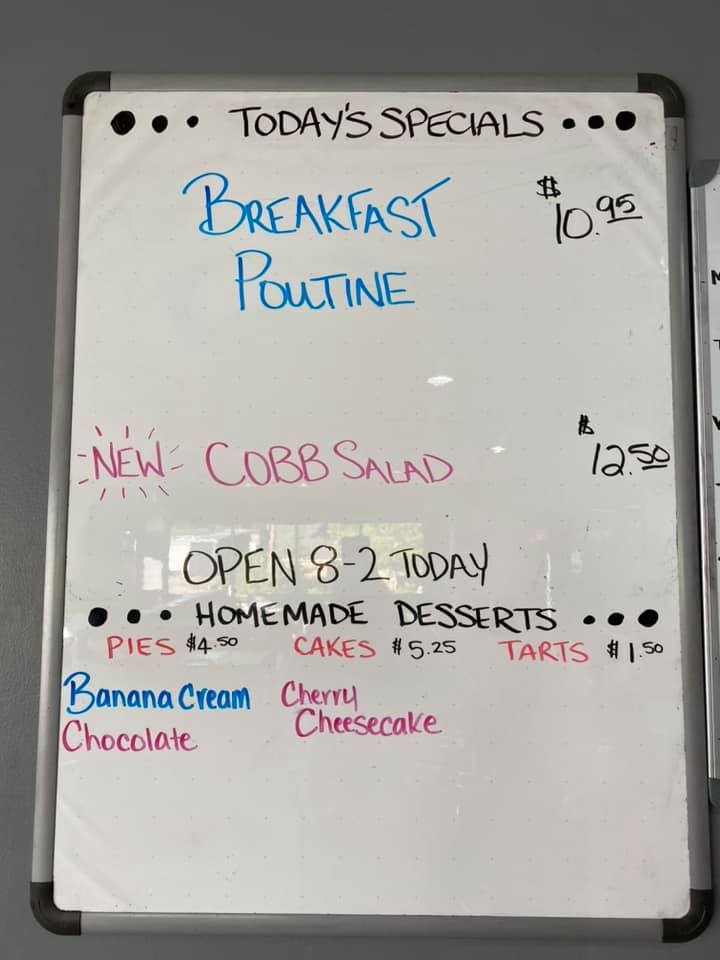 TODAY'S SPECIALS
BREAKFAST $10.95
POUTINE
NEW COBB SALAD $12.50
OPEN 8-2 TODAY
HOMEMADE DESSERTS
PIES $4.50 CAKES $5.25 TARTS $1.50
Banana Cream Cherry
Chocolate Cheesecake